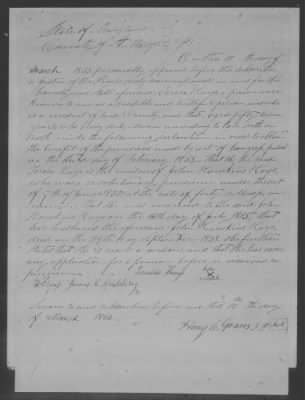 State of Maryland
County of St. Marys
On this 10th day of
March 1853 personally appeared before the subscriber
a Justice of the Peace duly commissioned in and for the
County and State aforesaid
known to me as a credible and truthful person and who
is a resident of said County, and State, aged fifty
years who being duly sworn according to law doth on
oath make the following declaration in order to obtain
the benefit of the provisions made by act of Congress passed
on the third day of February 1853. That she the said
is the widow of John Hawkins
who was a revolutionary pensioner under the act
of 7th of June 1832 at the rate of forty dollars per
was married to the said John
Hawkins on the 16th day of July 1815 that
her husband the aforesaid John Hawkins
died on the 29th day of September 1832. She further
states that she is now a widow, and that she has never
any application for a pension before or received a
pension
her
mark
Test James
Sworn to and subscribed before me this 10th day
of March 1853.
Henry C. Graves J.P. Seal